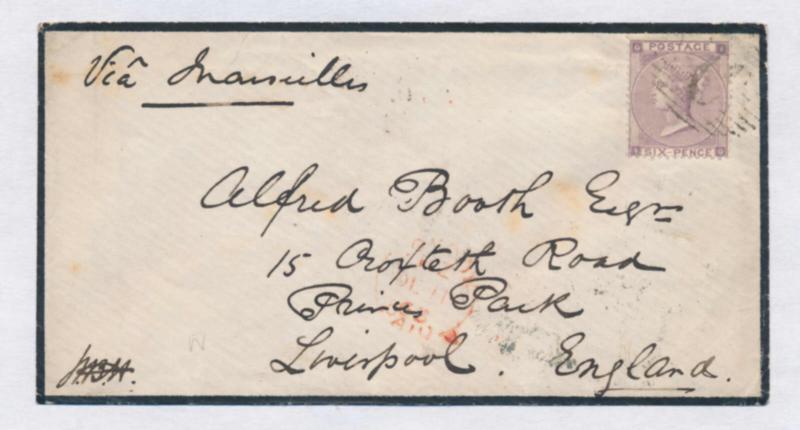 Viâ Marseilles
POSTAGE
SIX-PENCE
Alfred Booth Esqre
15 Croxteth Road
Princes Park
Liverpool. England.